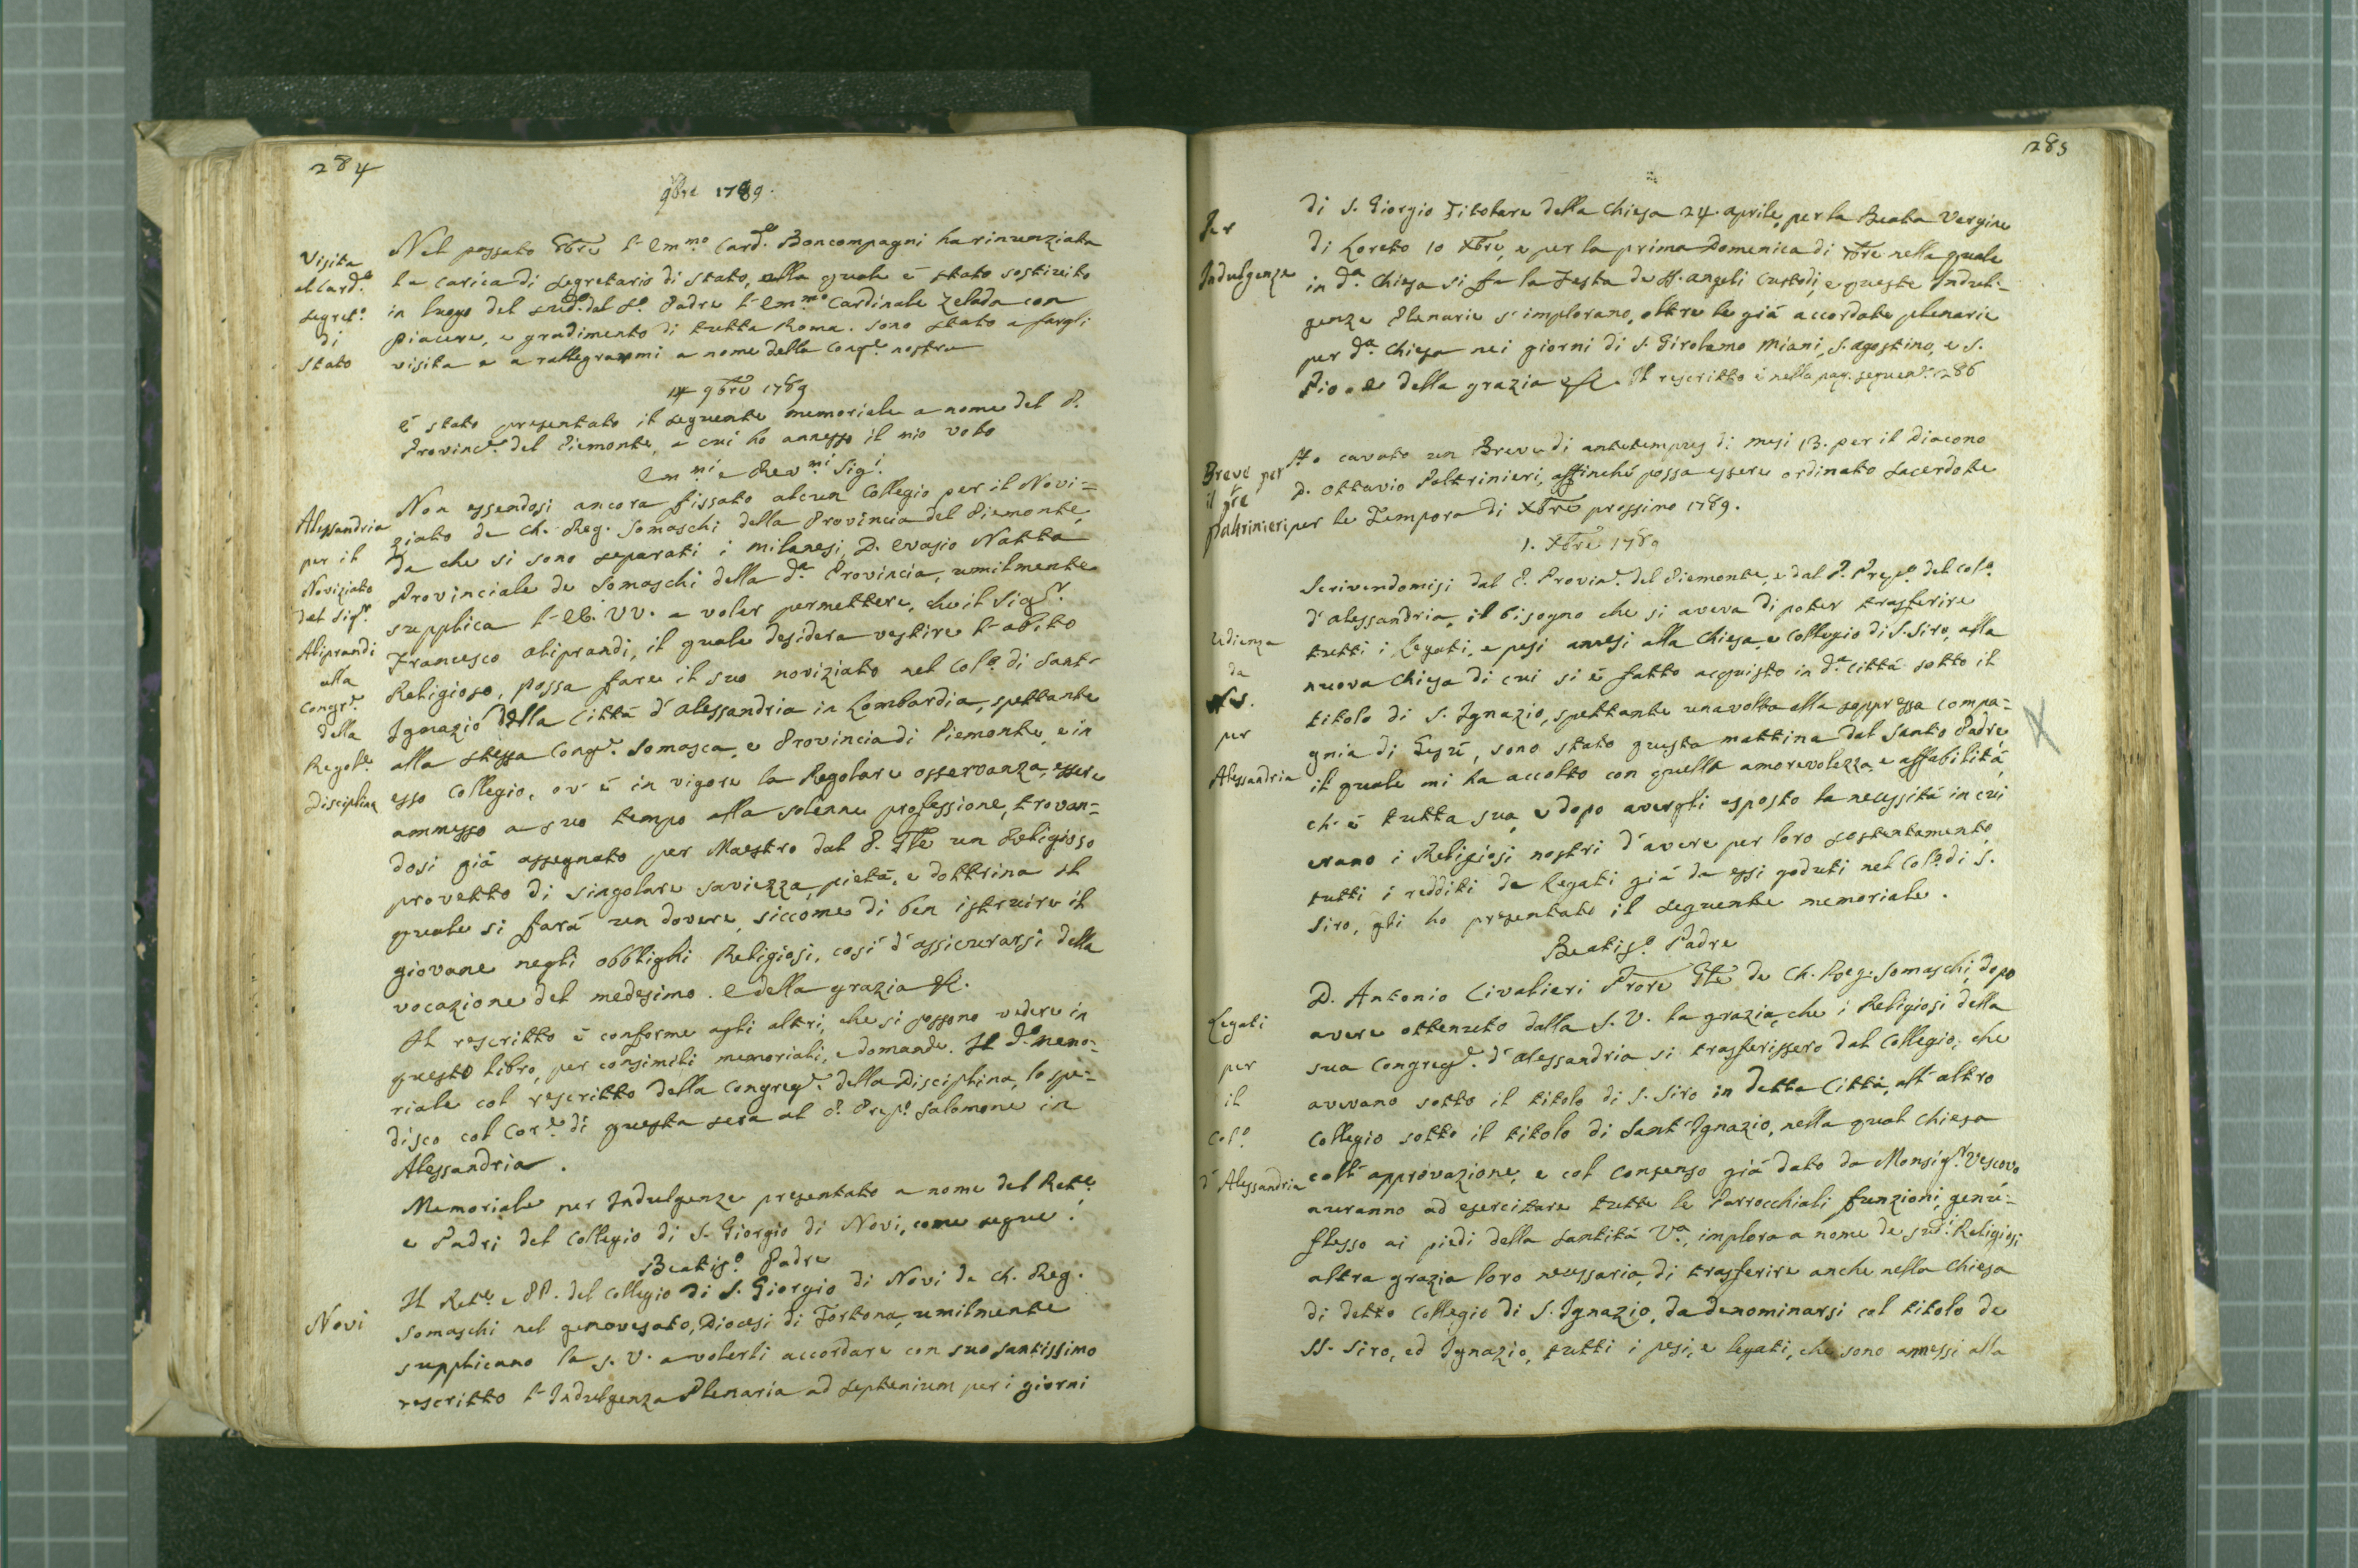 284
9bre 1789.
Visita
al Card.e
Segret.o
di
Stato
Nel passato 8bre l'Em.mo Card.e Boncompagni ha rinunziata
la carica di Segretario di Stato, alla quale è stato sostituito
in luogo del sud.o dal S.o Padre l'Em.mo Cardinale Zelada con
piacere, e gradimento di tutta Roma. Sono stato a fargli
visita e a rallegrarmi a nome della Cong.e nostra
14 9bre 1789
È stato presentato il seguente memoriale a nome del P.
Provinc.e del Piemonte, a cui ho annesso il mio voto
Em.mi e Rev.mi Sig.i
Alessandria
per il
Noviziato
del Sig.r
Aliprandi
alla
Congr.e
della
Regol.e
Disciplina
Non essendosi ancora fissato alcun Collegio per il Novi=
ziato de Ch. Reg. Somaschi della Provincia del Piemonte,
da che si sono separati i milanesi, D. Evasio Natta
Provinciale de Somaschi della d.a Provincia, umilmente
supplica l'EE. VV. a voler permettere, che il Sig.r
Francesco Aliprandi, il quale desidera vestire l'abito
Religioso, possa fare il suo noviziato nel Col.o di Sant'
Ignazio della Città d'Alessandria in Lombardia, spettante
alla stessa Cong.e Somasca, e Provincia di Piemonte, e in
esso Collegio, ov'è in vigore la Regolare osservanza, essere
ammesso a suo tempo alla solenne professione, trovan=
dosi già assegnato per Maestro dal P. Gle un Religioso
provetto di singolare saviezza, pietà, e dottrina il
quale si farà un dovere, siccome di ben istruire il
giovane negli obblighi Religiosi, così d'assicurarsi della
vocazione del medesimo. E della grazia &.
Il rescritto è conforme agli altri, che si possono vedere in
questo libro, per consimili memoriali, e domande. Il d.o memo=
riale col rescritto della Congreg.e della Disciplina, lo spe=
disco col Cor.e di questa sera al P. Prep.o Salomone in
Alessandria.
Memoriale per Indulgenze presentato a nome del Rett.e
e Padri del Collegio di S. Giorgio di Novi, come segue:
Beatis.o Padre
Novi
Il Rett.e e PP. del Collegio di S. Giorgio di Novi de Ch. Reg.
Somaschi nel genovesato, Diocesi di Tortona, umilmente
supplicano la S. V. a volerli accordare con suo santissimo
rescritto l'Indulgenza Plenaria ad septenium per i giorni
285
Per
Indulgenze
di S. Giorgio Titolare della Chiesa 24. aprile, per la Beata Vergine
di Loreto 10 Xbre, e per la prima Domenica di 7bre nella quale
in d.a Chiesa si fa la Festa de SS. angeli Custodi, e queste Indul=
genze Plenarie s'implorano, oltre le già accordate plenarie
per d.a Chiesa nei giorni di S. Girolamo Miani, S. agostino, e S.
Pio. E della grazia &. Il rescritto è nella pag. seguen.e 286
Breve per
il
Paltrinieri
Ho cavato un Breve di antetempus di mesi 13. per il Diacono
D. Ottavio Paltrinieri, affinché possa essere ordinato Sacerdote
per le Tempora di Xbre prossimo 1789.
1. Xbre 1789
Udienza
da
N.S.
per
Alessandria
Scrivendomisi dal P. Provin.e del Piemonte, e dal P. Prep.o del Col.o
d'Alessandria, il bisogno che si aveva di poter trasferire
tutti i Legati, e pesi annessi alla Chiesa, e Collegio di S. Siro, alla
nuova Chiesa di cui si è fatto acquisto in d.a Città sotto il
titolo di S. Ignazio, spettante una volta alla soppressa Compa=
gnia di Gesù, sono stato questa mattina dal Santo Padre
il quale mi ha accolto con quella amorevolezza, e affabilità,
ch'è tutta sua, e dopo avergli esposto la necessità in cui
erano i Religiosi nostri d'avere per loro sostentamento
tutti i redditi de Legati già da essi goduti nel Col.o di S.
Siro, gli ho presentato il seguente memoriale.
Beatis.o Padre
Legati
per
il
Col.o
d'Alessandria
D. Antonio Civalieri Prore Gle de Ch. Reg. Somaschi, dopo
avere ottenuto dalla S. V. la grazia, che i Religiosi della
sua Congreg.e d'Alessandria si trasferissero dal Collegio, che
avevano sotto il titolo di S. Siro in detta Città, all'altro
Collegio sotto il titolo di Sant'Ignazio, nella qual Chiesa
coll'approvazione, e col consenso già dato da Monsig.r Vescovo
auranno ad esercitare tutte le Parrocchiali funzioni, genu=
flesso ai piedi della Santità V.a, implora a nome de sud.i Religiosi
altra grazia loro necessaria, di trasferire anche nella Chiesa
di detto Collegio di S. Ignazio, da denominarsi col titolo de
SS. Siro, ed Ignazio, tutti i pesi, e legati, che sono annessi alla